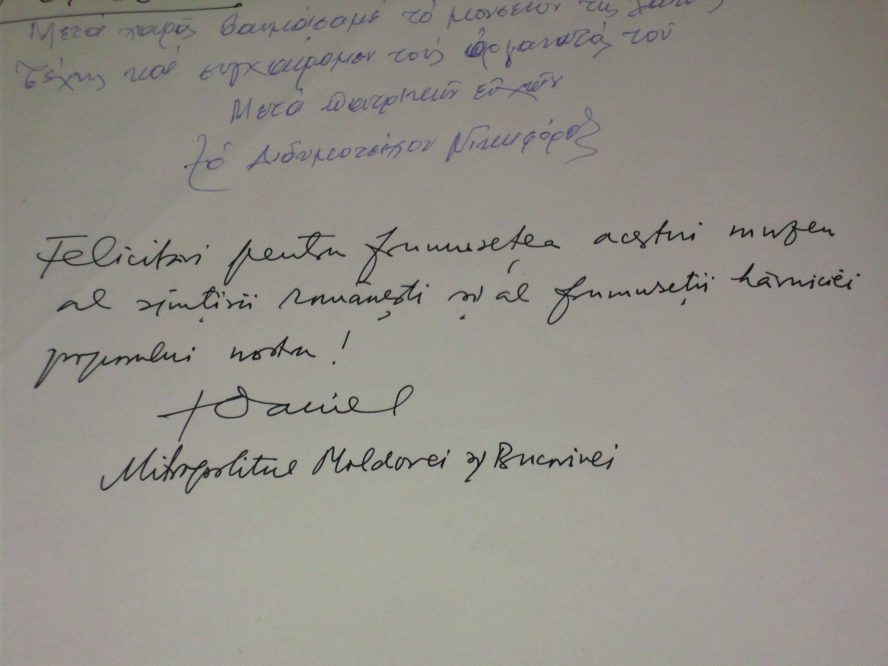 Μετά χαράς θαυμάσαμε τό μουσεῖον τῆς λαϊκῆς
τέχνης καί συγχαίρομεν τούς ὀργανωτάς του
Μετά πατρικῶν εὐχῶν
† ὁ Διδυμοτείχου Νικηφόρος
Felicitări pentru frumusețea acestui muzeu
al simțirii românești și al frumuseții hărniciei
poporului nostru!
† Daniel
Mitropolitul Moldovei și Bucovinei